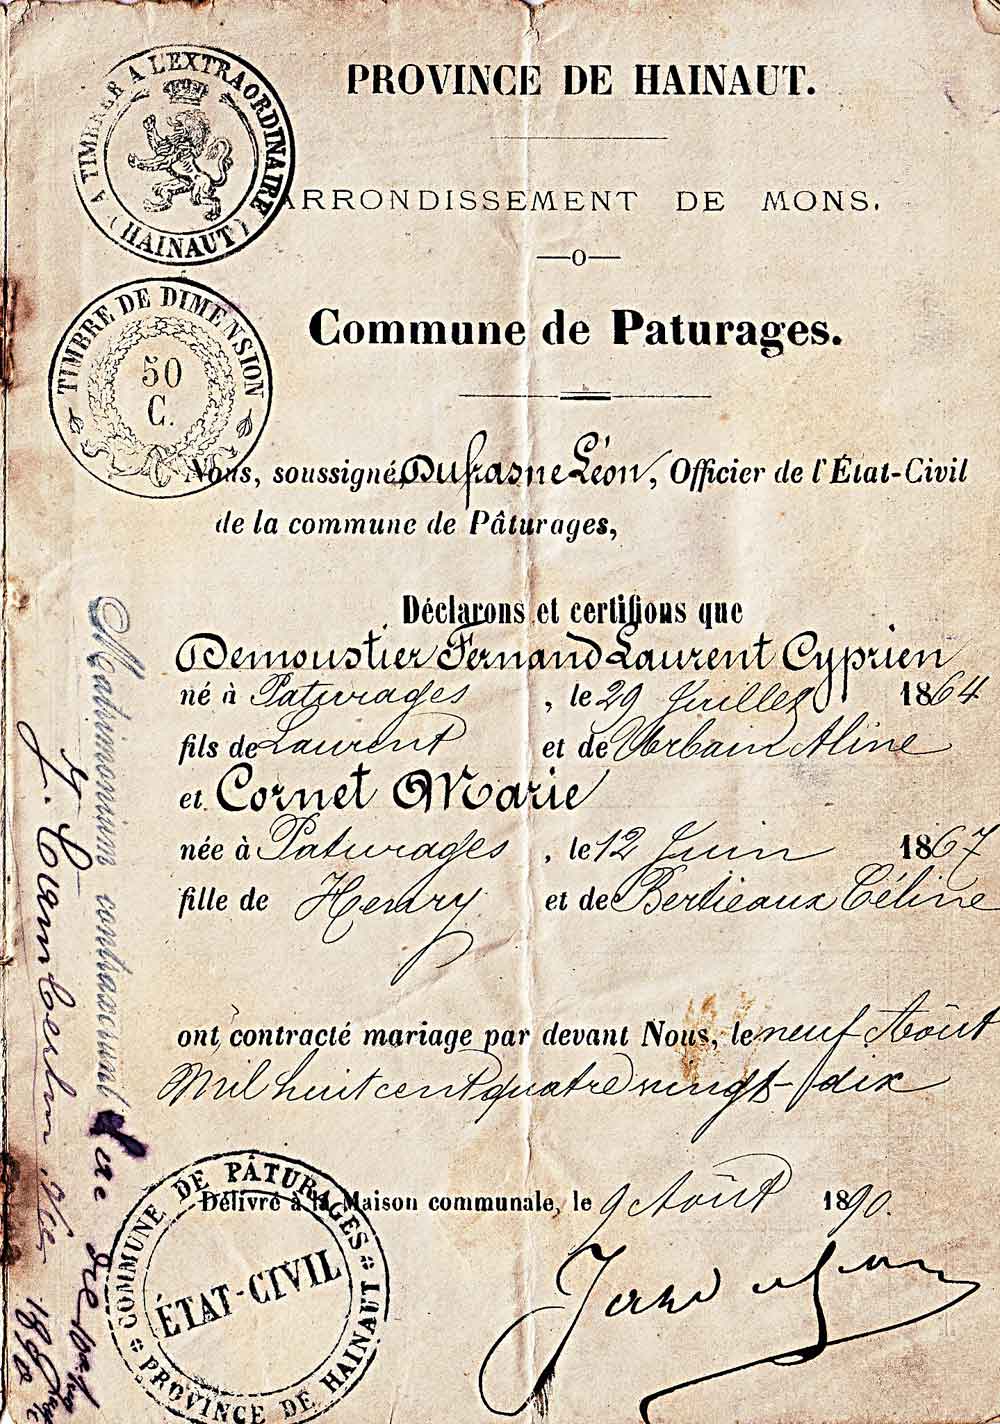 A TIMBRER A L'EXTRAORDINAIRE
(HAINAUT)
PROVINCE DE HAINAUT.
ARRONDISSEMENT DE MONS.
Commune de Paturages.
TIMBRE DE DIMENSION
50
C.
Nous, soussigné, Dufrasne Léon, Officier de l'État-Civil
de la commune de Pâturages,
Déclarons et certifions que
Demoustier Fernand Laurent Cyprien
né à Paturages, le 29 Juillet 1864
fils de Laurent et de Urbain Aline
et Cornet Marie
née à Paturages, le 12 Juin 1867
fille de Henry et de Bertieaux Céline
ont contracté mariage par devant Nous, le neuf Août
Mil huit cent quatre vingt-dix
Délivré à la Maison communale, le 9 Août 1890.
COMMUNE DE PÂTURAGES
ÉTAT-CIVIL
PROVINCE DE HAINAUT
Matrimonium contraxerunt